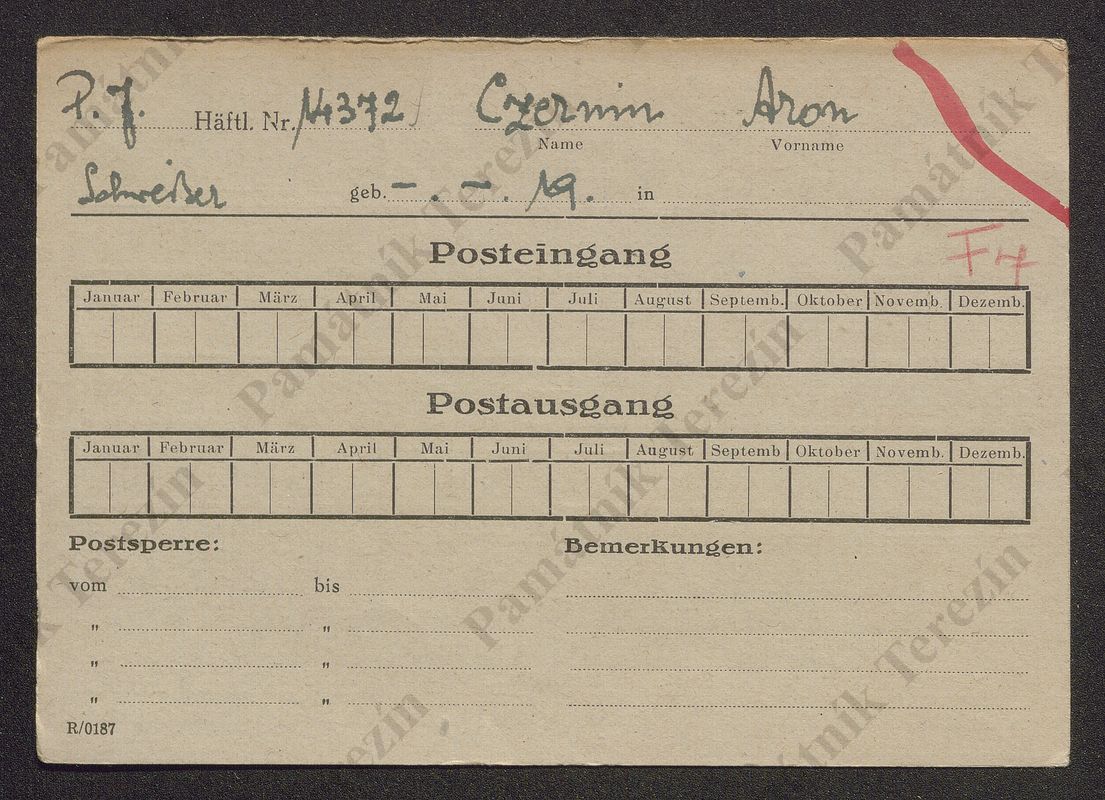 P. J. Häftl. Nr. 14372 Czernin Aron
Name Vorname
Schweißer geb. - . - . 19. in
Posteingang
Januar Februar März April Mai Juni Juli August Septemb. Oktober Novemb. Dezemb.
Postausgang
Januar Februar März April Mai Juni Juli August Septemb Oktober Novemb. Dezemb.
Postsperre: Bemerkungen:
vom bis
" "
" "
" "
R/0187
Památník Terezín